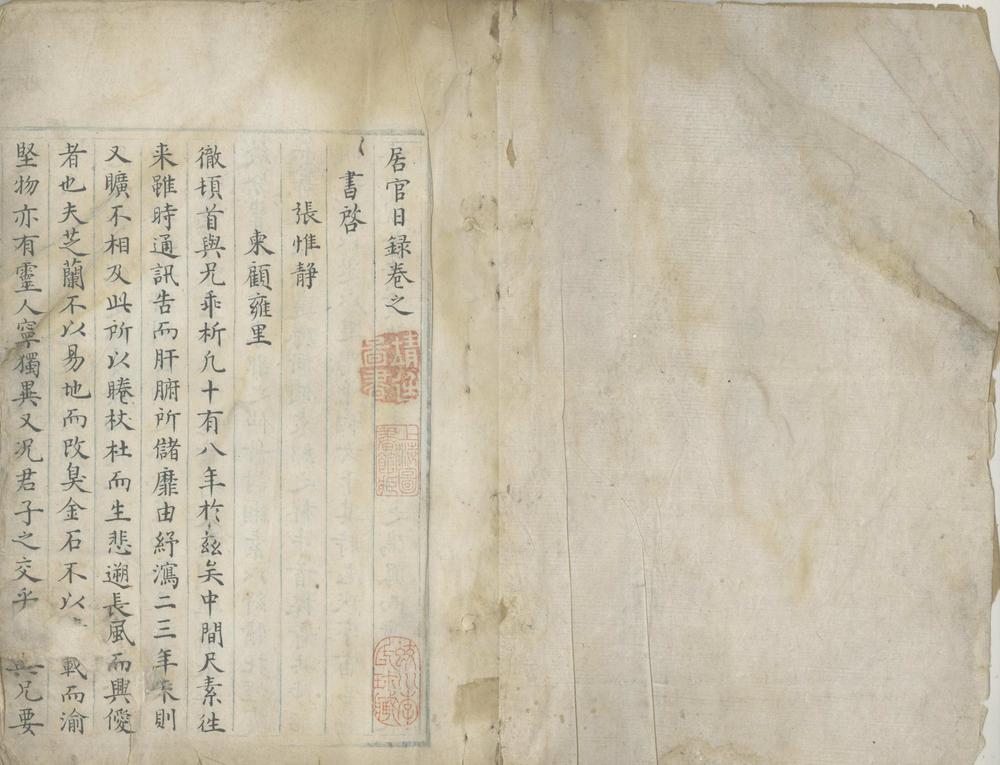 居官日録卷之
書啓
張惟静
柬顧雍里
徹頓首與兄乖析凡十有八年於茲矣中間尺素徃
来雖時通訊告而肝腑所儲靡由紓瀉二三年来則
又曠不相及此所以睠杕杜而生悲遡長風而興僾
者也夫芝蘭不以易地而改臭金石不以 載而渝
堅物亦有靈人寧獨異又况君子之交乎 與兄要
上海圖書館藏